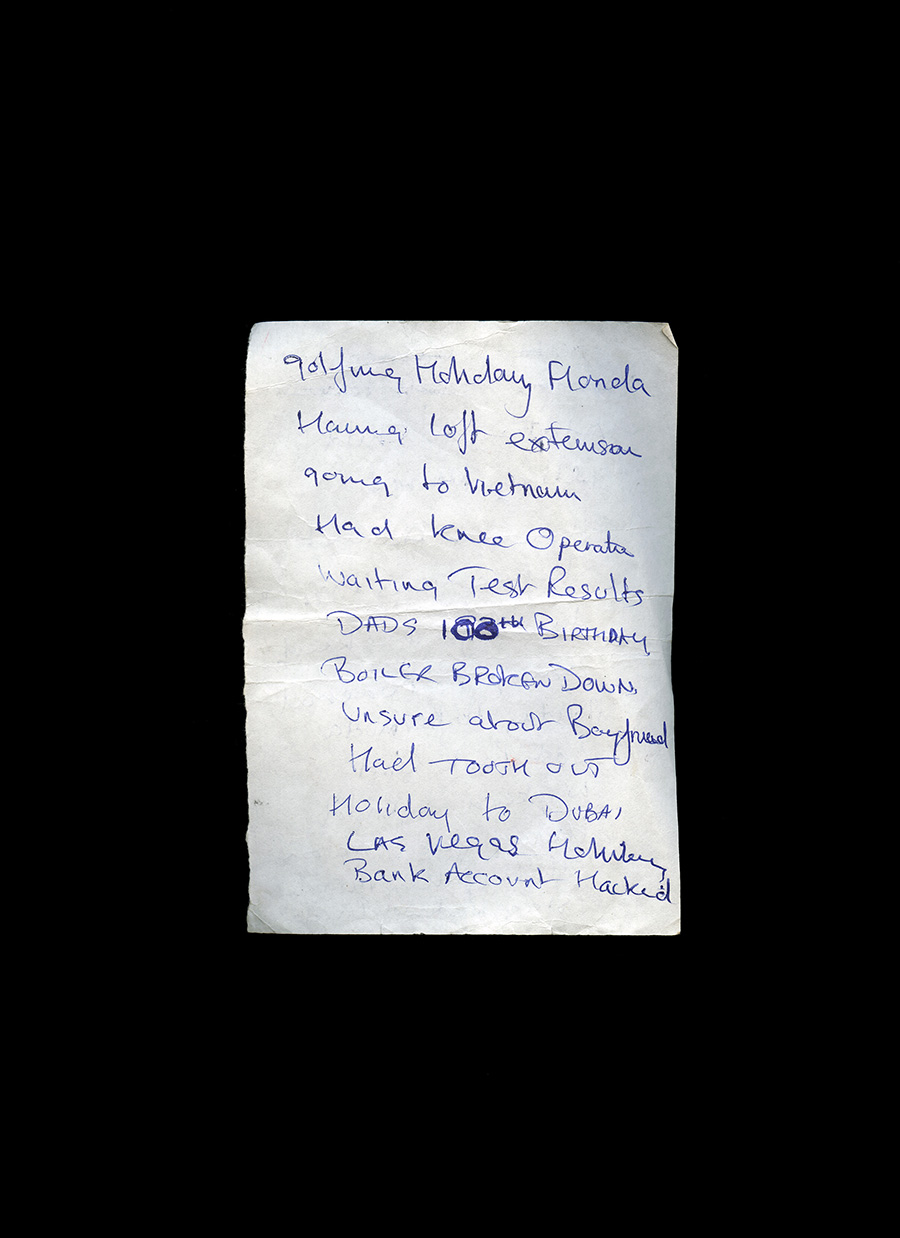 golfing Holiday Florida
Having loft extension
going to Vietnam
Had knee Operatn
Waiting Test Results
DADS 100th BIRTHDAY
BOILER BROKEN DOWN
Unsure about Boyfriend
Had TOOTH OUT
Holiday to DUBAI
LAS Vegas Holiday
Bank Account Hacked